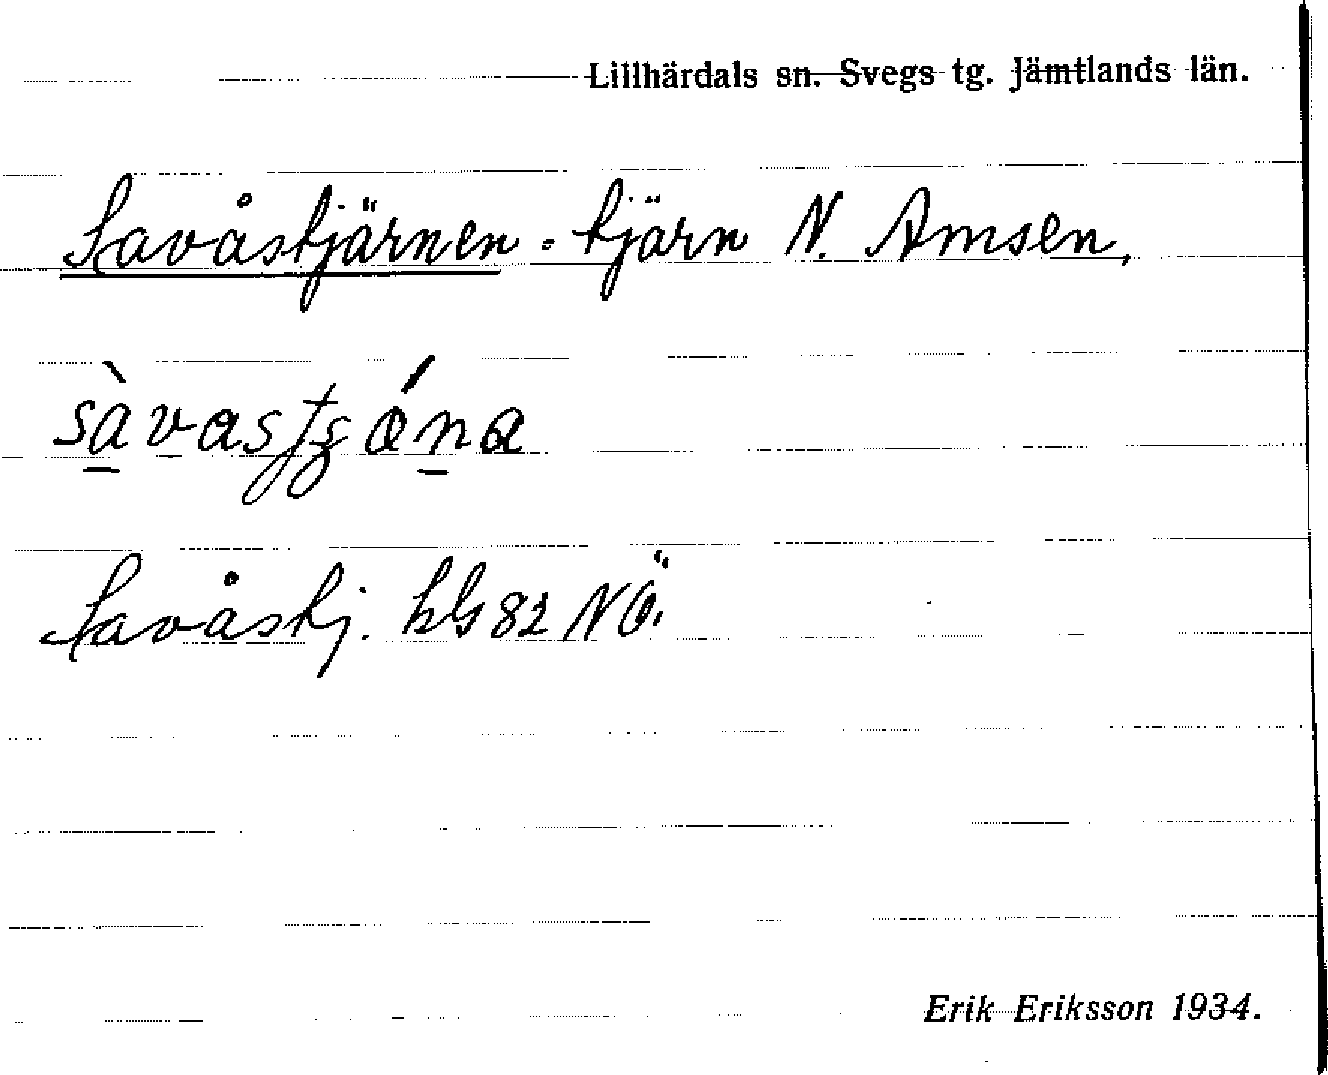 Lillhärdals sn. Svegs tg. Jämtlands län.
Savåstjärnen: tjärn N. Amsen,
Savåstj. kbl 82 NÖ.
Erik Eriksson 1934.